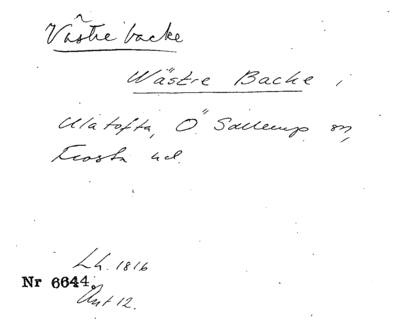 Västre backe
Wästre Backe i
Ö. Sallerup sn,
Frosta hd.
Lh. 1816
Nr 6644.
Akt 12.